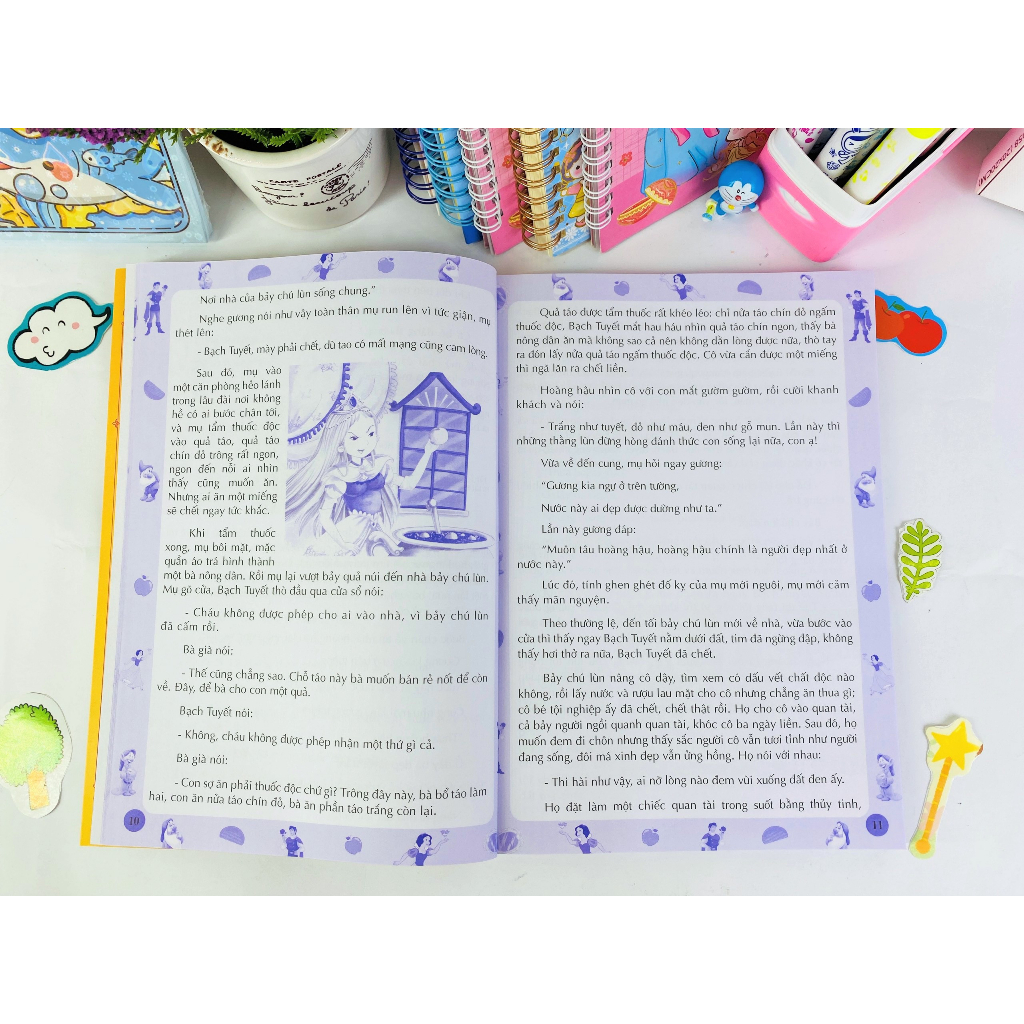 CARTE POSTALE
Nơi nhà của bảy chú lùn sống chung."
Nghe gương nói như vậy toàn thân mụ run lên vì tức giận, mụ
thét lên:
- Bạch Tuyết, mày phải chết, dù tao có mất mạng cũng cam lòng.
Sau đó, mụ vào
một căn phòng hẻo lánh
trong lâu đài nơi không
hề có ai bước chân tới,
và mụ tẩm thuốc độc
vào quả táo, quả táo
chín đỏ trông rất ngon,
ngon đến nỗi ai nhìn
thấy cũng muốn ăn.
Nhưng ai ăn một miếng
sẽ chết ngay tức khắc.
Khi tẩm thuốc
xong, mụ bôi mặt, mặc
quần áo trá hình thành
một bà nông dân. Rồi mụ lại vượt bảy quả núi đến nhà bảy chú lùn.
Mụ gõ cửa, Bạch Tuyết thò đầu qua cửa sổ nói:
- Cháu không được phép cho ai vào nhà, vì bảy chú lùn
đã cấm rồi.
Bà già nói:
- Thế cũng chẳng sao. Chỗ táo này bà muốn bán rẻ nốt để còn
về. Đây, để bà cho con một quả.
Bạch Tuyết nói:
- Không, cháu không được phép nhận một thứ gì cả.
Bà già nói:
- Con sợ ăn phải thuốc độc chứ gì? Trông đây này, bà bổ táo làm
hai, con ăn nửa táo chín đỏ, bà ăn phần táo trắng còn lại.
10
Quả táo được tẩm thuốc rất khéo léo: chỉ nửa táo chín đỏ ngấm
thuốc độc, Bạch Tuyết mắt hau háu nhìn quả táo chín ngon, thấy bà
nông dân ăn mà không sao cả nên không dằn lòng được nữa, thò tay
ra đón lấy nửa quả táo ngấm thuốc độc. Cô vừa cắn được một miếng
thì ngã lăn ra chết liền.
Hoàng hậu nhìn cô với con mắt gườm gườm, rồi cười khanh
khách và nói:
- Trắng như tuyết, đỏ như máu, đen như gỗ mun. Lần này thì
những thằng lùn đừng hòng đánh thức con sống lại nữa, con ạ!
Vừa về đến cung, mụ hỏi ngay gương:
"Gương kia ngự ở trên tường,
Nước này ai đẹp được dường như ta."
Lần này gương đáp:
"Muôn tâu hoàng hậu, hoàng hậu chính là người đẹp nhất ở
nước này."
Lúc đó, tính ghen ghét đố kỵ của mụ mới nguôi, mụ mới cảm
thấy mãn nguyện.
Theo thường lệ, đến tối bảy chú lùn mới về nhà, vừa bước vào
cửa thì thấy ngay Bạch Tuyết nằm dưới đất, tim đã ngừng đập, không
thấy hơi thở ra nữa, Bạch Tuyết đã chết.
Bảy chú lùn nâng cô dậy, tìm xem có dấu vết chất độc nào
không, rồi lấy nước và rượu lau mặt cho cô nhưng chẳng ăn thua gì;
cô bé tội nghiệp ấy đã chết, chết thật rồi. Họ cho cô vào quan tài,
cả bảy người ngồi quanh quan tài, khóc cô ba ngày liền. Sau đó, họ
muốn đem đi chôn nhưng thấy sắc người cô vẫn tươi tỉnh như người
đang sống, đôi má xinh đẹp vẫn ửng hồng. Họ nói với nhau:
- Thi hài như vậy, ai nỡ lòng nào đem vùi xuống đất đen ấy.
Họ đặt làm một chiếc quan tài trong suốt bằng thủy tinh,
11